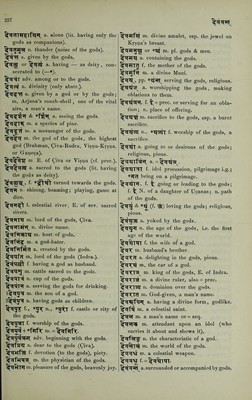 237
देवतासहायिन् a. alone (lit. having only the
gods as companions).
देवतुमुल n. thunder (noise of the gods).
देवत्त a. given by the gods.
देवत्य or देवत्य a. having — as deity, con-
secrated to (—•).
देवत्रा adv. among or to the gods.
देवत्व n. divinity (only abstr.).
देवदत्त a. given by a god or by the gods;
m. Arjuna's conch-shell, one of the vital
airs, a man's name.
देवदर्शन & °दर्शिन् a. seeing the gods.
देवदारु m. n. a species of pine.
देवदूत m. a messenger of the gods.
देवदेव m. the god of the gods, the highest
god (Brahman, Çiva-Rudra, Viṣṇu-Kṛṣṇa,
or Gaṇeça).
देवदेवेश m. E. of Çiva or Viṣṇu (cf. prec.).
देवदैवत्य a. sacred to the gods (lit. having
the gods as deity).
देवद्र्यञ्च्, f. °द्रीची turned towards the gods.
देवन n. shining, beaming; playing, game at
dice.
देवनदी f. celestial river, E. of sev. sacred
rivers.
देवनाथ m. lord of the gods, Çiva.
देवनामन् n. divine name.
देवनिकाय m. host of gods.
देवनिद् m. a god-hater.
देवनिर्मित a. created by the gods.
देवपति m. lord of the gods (Indra).
देवपत्नी f. having a god as husband.
देवपशु m. cattle sacred to the gods.
देवपात्र n. cup of the gods.
देवपान a. serving the gods for drinking.
देवपुत्र m. the son of a god.
देवपुत्र a. having gods as children.
देवपुर् f., °पुर n., °पुरा f. castle or city of
the gods.
देवपूजा f. worship of the gods.
देवपूर्व + °गिरि = देवगिरि.
देवपूर्वकम् adv. beginning with the gods.
देवप्रिय a. dear to the gods (Çiva).
देवभक्ति f. devotion (to the gods), piety.
देवभिषज् m. the physician of the gods.
देवभोग m. pleasure of the gods, heavenly joy.
देवमणि m. divine amulet, esp. the jewel on
Kṛṣṇa's breast.
देवमनुष्य or °ष्य m. pl. gods & men.
देवमय a. containing the gods.
देवमातृ f. the mother of the gods.
देवमुनि m. a divine Muni.
देवयज्, pp. °यन्त् serving the gods, religious.
देवयज a. worshipping the gods, making
oblations to them.
देवयजन, f. ई =prec. or serving for an obla-
tion; n. place of offering.
देवयज्ञ m. sacrifice to the gods, esp. a burnt
sacrifice.
देवयज्य n. °यज्या f. worship of the gods, a
sacrifice.
देवया a. going to or desirous of the gods;
religious, pious.
देवयाजिन् a. = देवयज.
देवयात्रा f. idol procession, pilgrimage i.g.;
being on a pilgrimage.
देवयान, f. ई going or leading to the gods;
f. ई N. of a daughter of Uçanas; n. path
of the gods.
देवयु & °यू (f. यू) loving the gods; religious,
pious.
देवयुक्त a. yoked by the gods.
देवयुग n. the age of the gods, i.e. the first
age of the world.
देवयोषा f. the wife of a god.
देवर m. husband's brother
देवरत a. delighting in the gods, pious.
देवरथ m. the car of a god.
देवराज m. king of the gods, E. of Indra.
देवराज m. a divine ruler, also = prec.
देवराज्य n. dominion over the gods.
देवरात m. God-given, a man's name.
देवरूपिन् a. having a divine form, godlike.
देवर्षि m. a celestial saint.
देवल m. a man's name or = seq.
देवलक m. attendant upon an idol (who
carries it about and shows it),
देवलिङ्ग n. the characteristic of a god.
देवलोक m. the world of the gods.
देववध m. a celestial weapon.
देववन्त् a. surrounded or accompanied by gods.